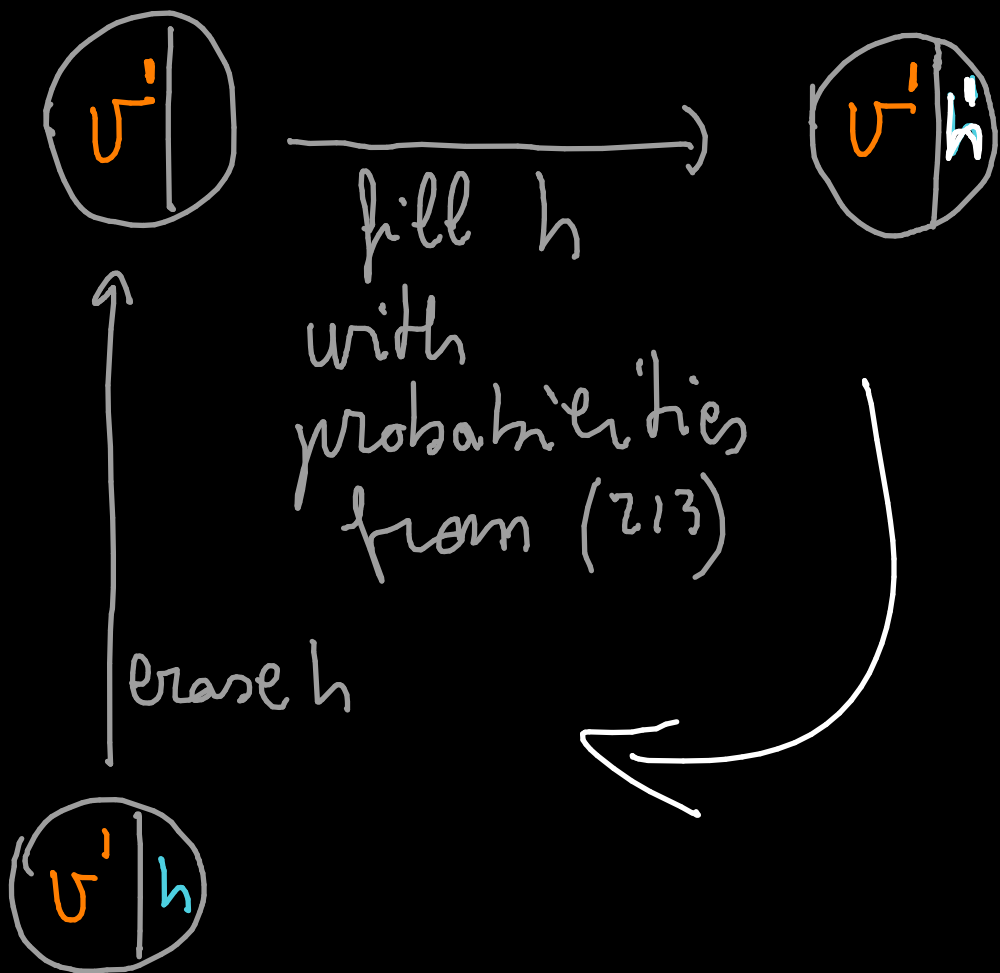 v'
v' h'
fill h
with
probabilities
from (213)
erase h
v' h